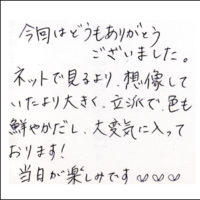 今回はどうもありがとう
ございました。
ネットで見るより、想像して
いたより大きく、立派で、色も
鮮やかだし、大変気に入って
おります!
当日が楽しみです♡♡♡